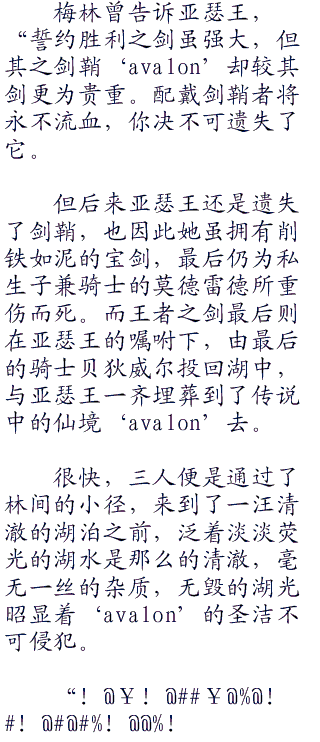 梅林曾告诉亚瑟王，
“誓约胜利之剑虽强大，但
其之剑鞘‘avalon’却较其
剑更为贵重。配戴剑鞘者将
永不流血，你决不可遗失了
它。
但后来亚瑟王还是遗失
了剑鞘，也因此她虽拥有削
铁如泥的宝剑，最后仍为私
生子兼骑士的莫德雷德所重
伤而死。而王者之剑最后则
在亚瑟王的嘱咐下，由最后
的骑士贝狄威尔投回湖中，
与亚瑟王一齐埋葬到了传说
中的仙境‘avalon’去。
很快，三人便是通过了
林间的小径，来到了一汪清
澈的湖泊之前，泛着淡淡荧
光的湖水是那么的清澈，毫
无一丝的杂质，无毁的湖光
昭显着‘avalon’的圣洁不
可侵犯。
“！@￥！@##￥@%@！
#！@#@#%！@@%！